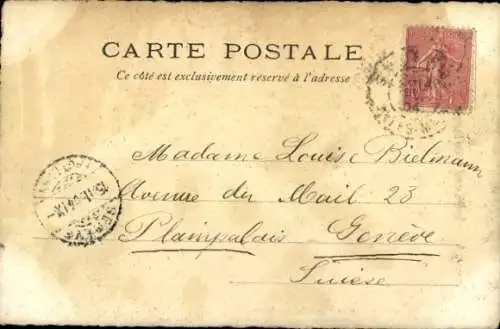 CARTE POSTALE
Ce côté est exclusivement réservé à l'adresse
Madame Louise Bielmann
Avenue du Mail 23
Plainpalais Genève
Suisse